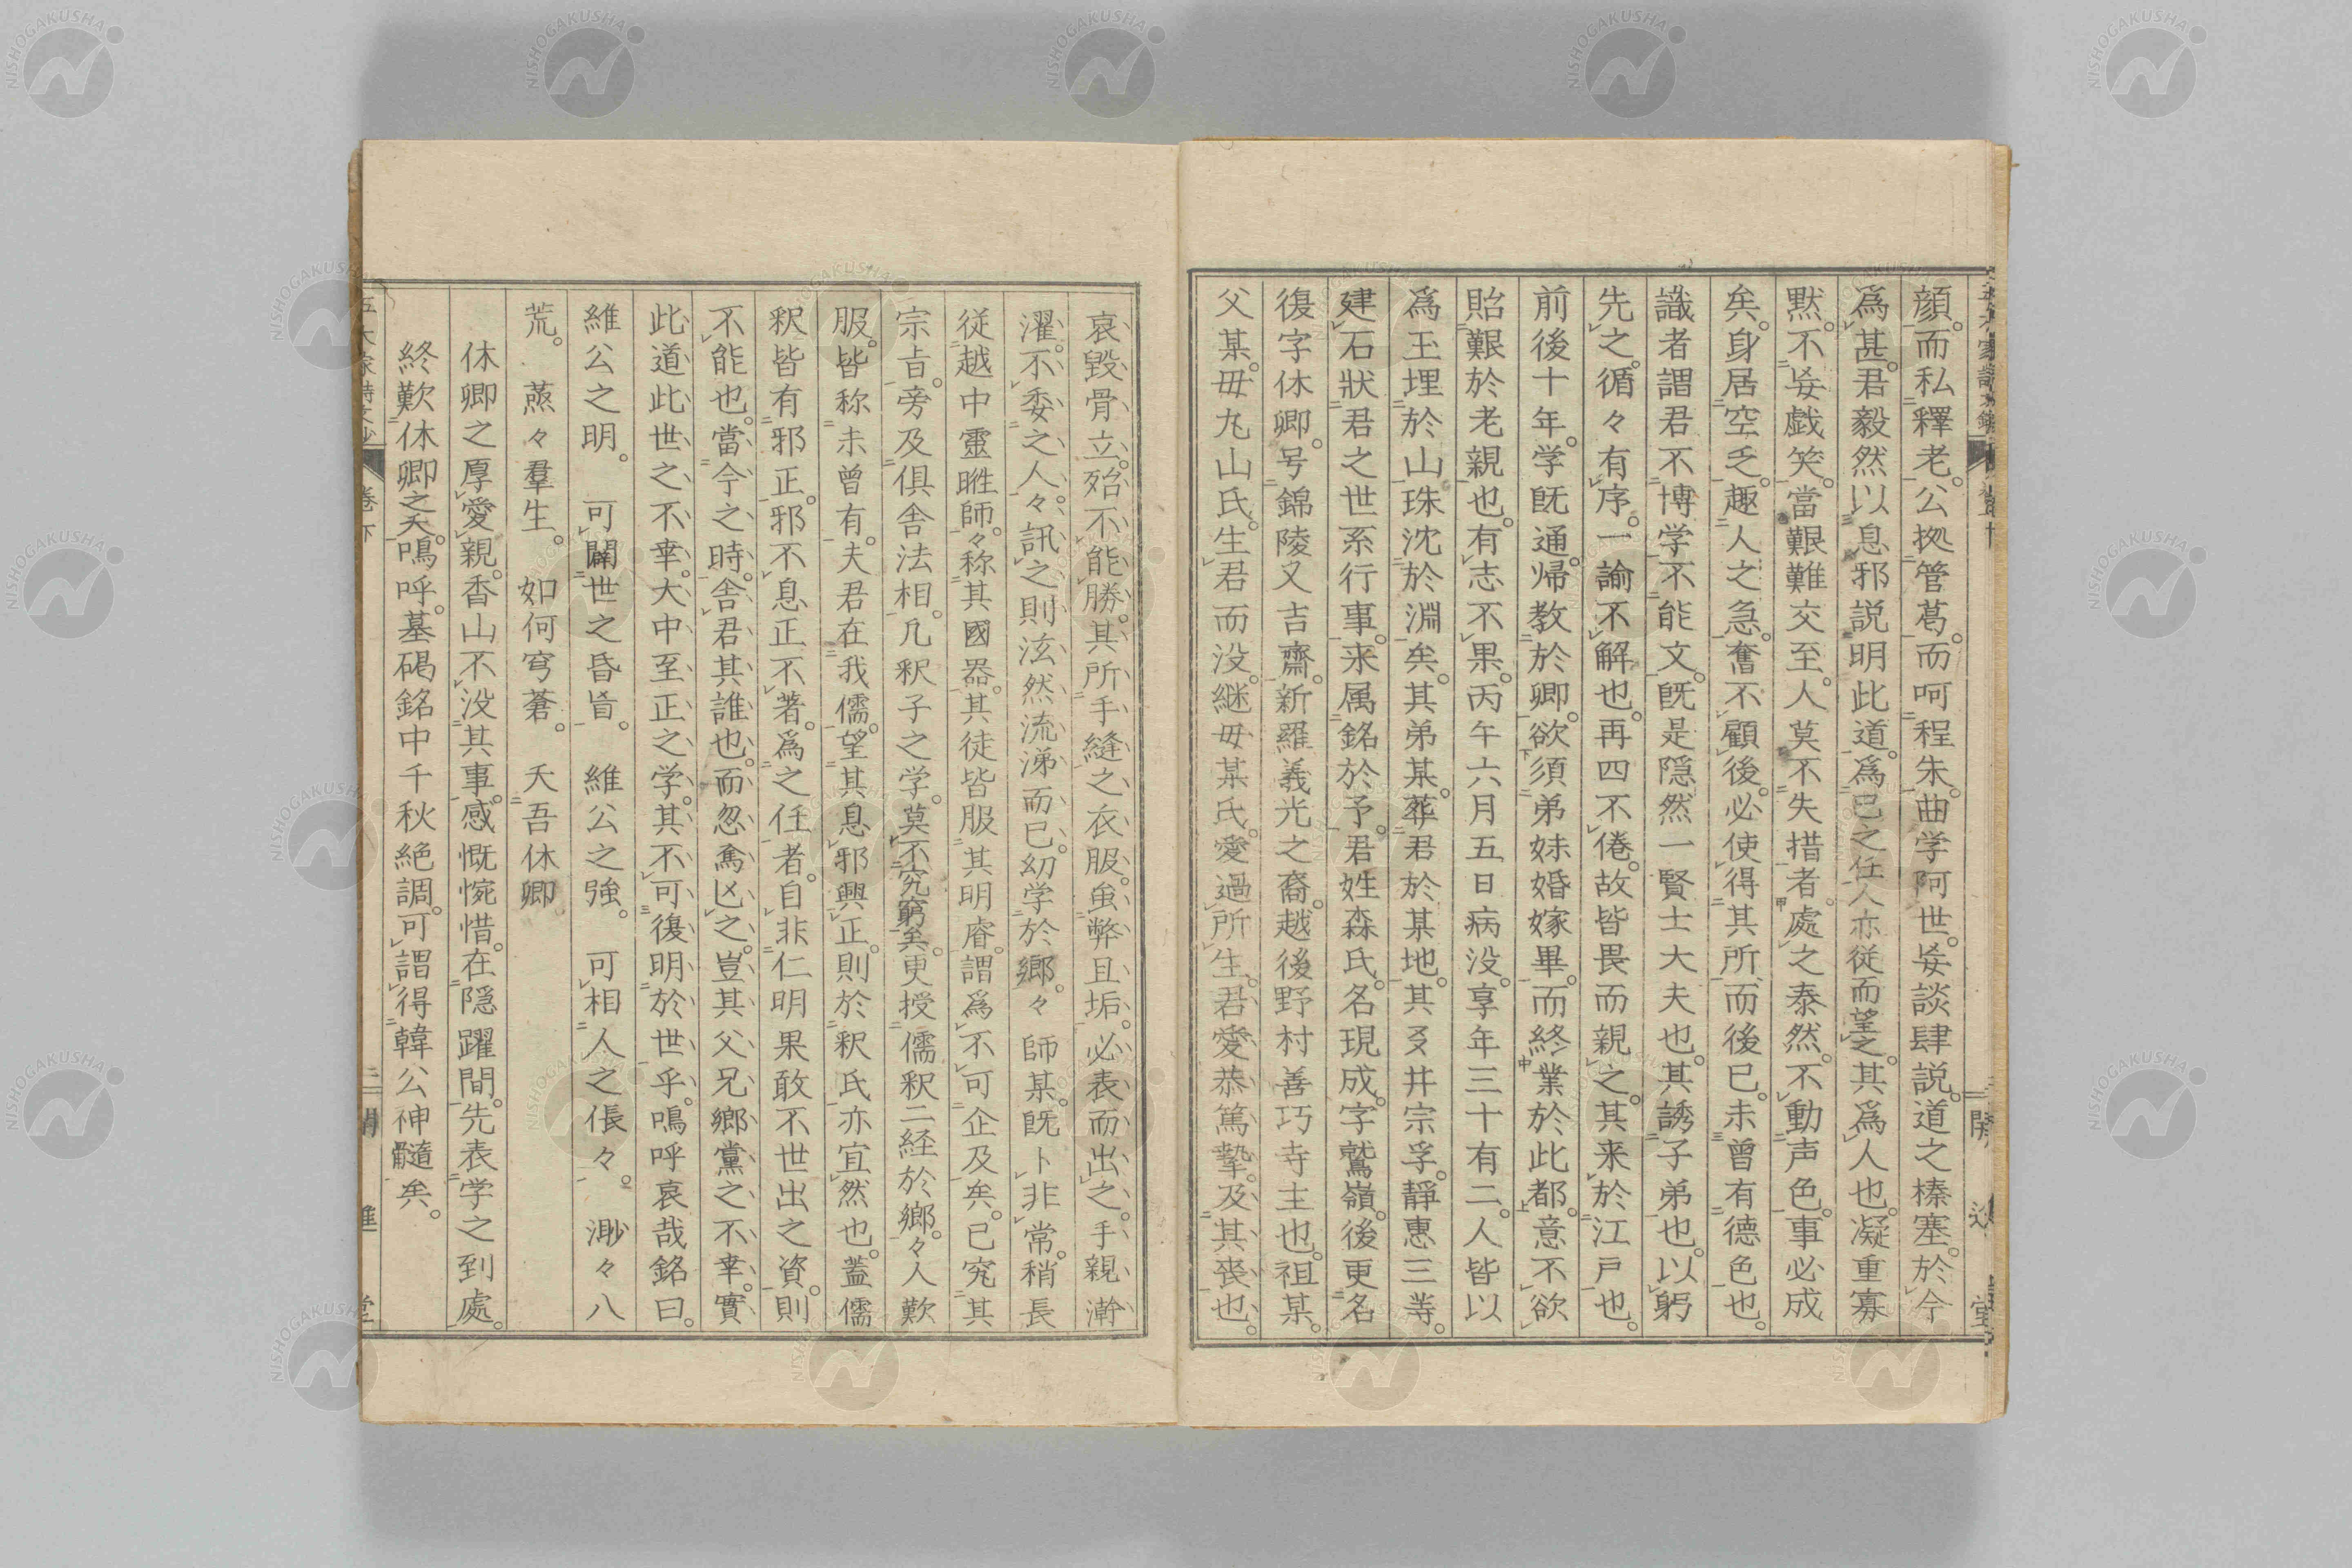 顔。而私釋老。公拠管葛。而呵程朱。曲学阿世。妄談肆説。道之榛塞。於今
爲甚。君毅然以息邪説明此道。爲己之任。人亦従而望之。其爲人也。凝重寡
黙。不妄戯笑。當艱難交至。人莫不失措者。處之泰然。不動声色。事必成
矣。身居空乏。趣人之急。奮不顧後。必使得其所、而後已。未曾有德色也。
識者謂君不博学、不能文。既是隠然一賢士大夫也。其誘子弟也。以躬
先之。循々有序。一諭不解也。再四不倦。故皆畏而親之。其来於江戸也。
前後十年。学既通。帰教於卿。欲須弟妹婚嫁畢。而終業於此都。意不欲
貽艱於老親也。有志不果。丙午六月五日病没。享年三十有二。人皆以
爲玉埋於山、珠沈於淵矣。其弟某。葬君於某地。其友井宗孚。靜惠三等。
建石状君之世系行事。来属銘於予。君姓森氏。名現成。字鷲嶺。後更名
復字休卿。号錦陵又吉齋。新羅義光之裔。越後野村善巧寺主也。祖某。
父某。毋丸山氏。生君而没。継毋某氏。愛過所生。君愛恭篤摯。及其喪也。
哀毀骨立。殆不能勝。其所手縫之衣服。虽弊且垢。必表而出之。手親澣
濯。不委之人々。訊之則泫然流涕而已。幼学於鄉。々師某。既卜非常。稍長
従越中靈睢師。々称其國器。其徒皆服其明睿。謂爲不可企及矣。已究其
宗旨。旁及倶舎法相。凡釈子之学。莫不究窮矣。更授儒釈二経於鄉。々人歎
服。皆称未曾有。夫君在我儒。望其息邪興正。則於釈氏亦宜然也。蓋儒
釈皆有邪正。邪不息正不著。爲之任者。自非仁明果敢不世出之資。則
不能也。當今之時。舎君其誰也。而忽焉凶之。豈其父兄鄉黨之不幸。實
此道此世之不幸。大中至正之学。其不可復明於世乎。鳴呼哀哉。銘曰。
維公之明。 可闢世之昏旨。 維公之強。 可相人之倀々。 渺々八
荒。 蒸々羣生。 如何穹蒼。 夭吾休卿。
休卿之厚愛親。香山不没其事。感慨惋惜。在隠躍間。先表学之到處。
終歎休卿之夭。鳴呼。墓碣銘中千秋絶調。可謂得韓公神髓矣。